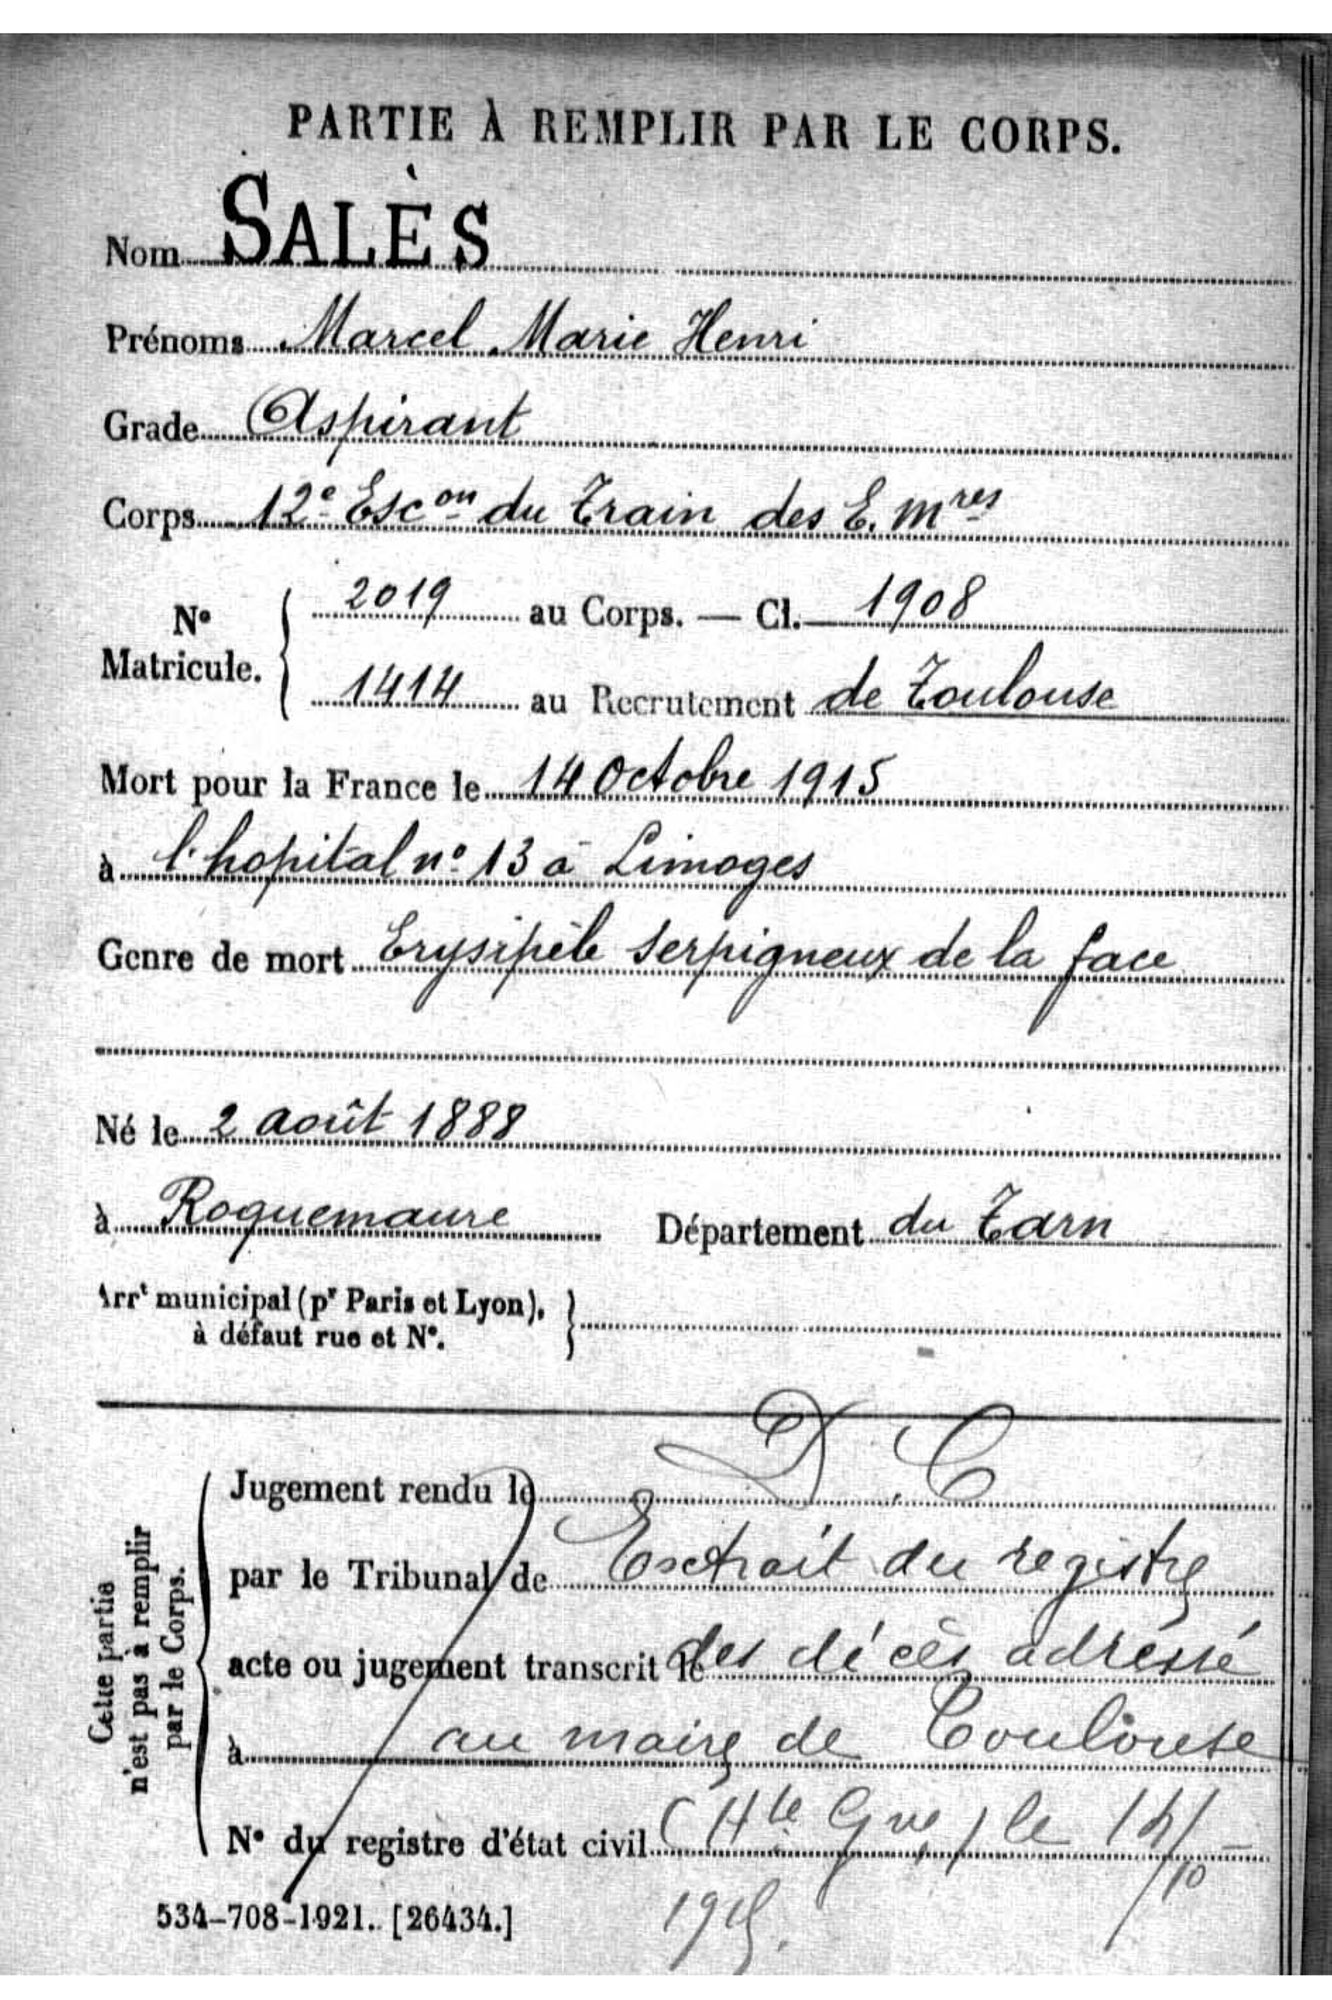 PARTIE À REMPLIR PAR LE CORPS.
Nom SALÈS
Prénoms Marcel Marie Henri
Grade Aspirant
Corps 12e Escon du Train des E. Mres
No Matricule. { 2019 au Corps. — Cl. 1908
1414 au Recrutement de Toulouse
Mort pour la France le 14 Octobre 1915
à l'hopital no 13 à Limoges
Genre de mort Erysipèle serpigneux de la face
Né le 2 août 1888
à Roquemaure Département du Tarn
Arrt municipal (pr Paris et Lyon), }
à défaut rue et No.
D C
Cette partie
n'est pas à remplir
par le Corps.
Jugement rendu le
par le Tribunal de Extrait du registre
acte ou jugement transcrit le des décès adressé
à au maire de Toulouse
No du registre d'état civil (Hte Gne) le 14/10-
1915.
534-708-1921. [26434.]